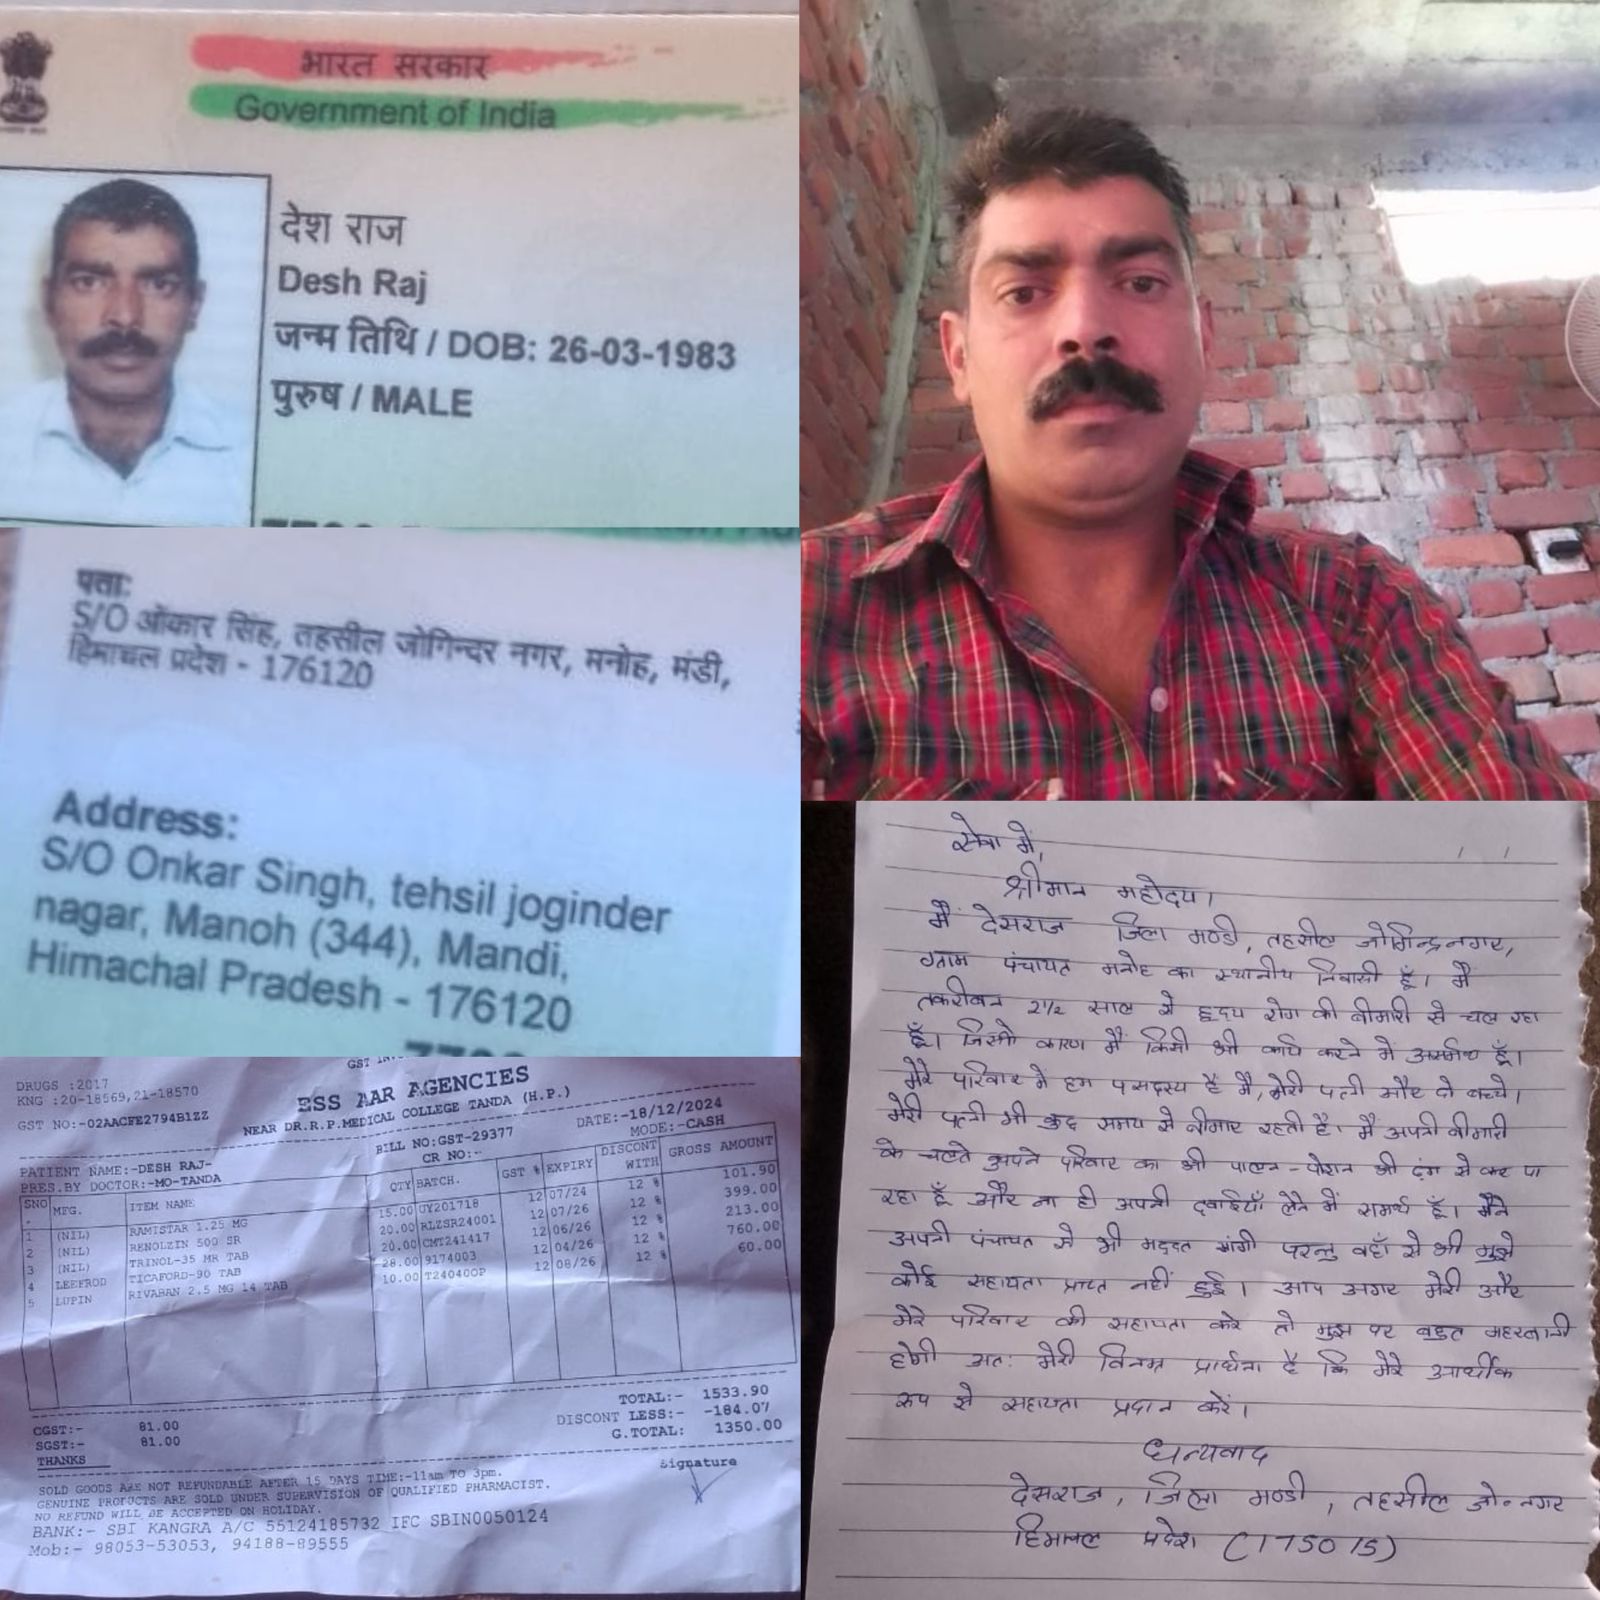 भारत सरकार
Government of India
देश राज
Desh Raj
जन्म तिथि / DOB: 26-03-1983
पुरुष / MALE
पता:
S/O ओंकार सिंह, तहसील जोगिन्दर नगर, मनोह, मंडी,
हिमाचल प्रदेश - 176120
Address:
S/O Onkar Singh, tehsil joginder
nagar, Manoh (344), Mandi,
Himachal Pradesh - 176120
DRUGS :2017
KNG :20-18569,21-18570
GST NO:-02AACFE2794B1ZZ
ESS AAR AGENCIES
NEAR DR.R.P.MEDICAL COLLEGE TANDA (H.P.)
BILL NO:GST-29377
DATE:-18/12/2024
CR NO:-
MODE:-CASH
PATIENT NAME:-DESH RAJ-
PRES.BY DOCTOR:-MO-TANDA
SNO. MFG. ITEM NAME QTY BATCH. GST % EXPIRY DISCONT WITH GROSS AMOUNT
1 (NIL) RAMISTAR 1.25 MG 15.00 UY201718 12 07/24 12 % 101.90
2 (NIL) RENOLZIN 500 SR 20.00 RLZSR24001 12 07/26 12 % 399.00
3 (NIL) TRINOL-35 MR TAB 20.00 CMT241417 12 06/26 12 % 213.00
4 LEEFROD TICAFORD-90 TAB 28.00 9174003 12 04/26 12 % 760.00
5 LUPIN RIVABAN 2.5 MG 14 TAB 10.00 T24040OP 12 08/26 12 % 60.00
TOTAL:- 1533.90
DISCONT LESS:- -184.07
G.TOTAL: 1350.00
CGST:- 81.00
SGST:- 81.00
THANKS
signature
SOLD GOODS ARE NOT REFUNDABLE AFTER 15 DAYS TIME:-11am TO 3pm.
GENUINE PRODUCTS ARE SOLD UNDER SUPERVISION OF QUALIFIED PHARMACIST.
NO REFUND WILL BE ACCEPTED ON HOLIDAY.
BANK:- SBI KANGRA A/C 55124185732 IFC SBIN0050124
Mob:- 98053-53053, 94188-89555
सेवा में,
श्रीमान महोदय।
मैं देसराज जिला मण्डी, तहसील जोगिन्द्रनगर,
ग्राम पंचायत मनोह का स्थानीय निवासी हूँ। मैं
तकरीबन 2½ साल से हृदय रोग की बीमारी से चल रहा
हूँ। जिसके कारण मैं किसी भी कार्य करने में असमर्थ हूँ।
मेरे परिवार में हम 4 सदस्य हैं मैं, मेरी पत्नी और दो बच्चे।
मेरी पत्नी भी कुछ समय से बीमार रहती है। मैं अपनी बीमारी
के चलते अपने परिवार का भी पालन-पोशन भी ढ़ंग से कर पा
रहा हूँ और ना ही अपनी दवाईयाँ लेने में समर्थ हूँ। मैंने
अपनी पंचायत से भी मद्दत मांगी परन्तु वहाँ से भी मुझे
कोई सहायता प्राप्त नहीं हुई। आप अगर मेरी और
मेरे परिवार की सहायता करे तो मुझ पर बहुत महरबानी
होगी अत: मेरी विनम्र प्रार्थना है कि मेरे आर्थीक
रूप से सहायता प्रदान करें।
धन्यवाद
देसराज, जिला मण्डी, तहसील जो॰नगर
हिमाचल प्रदेश (175015)